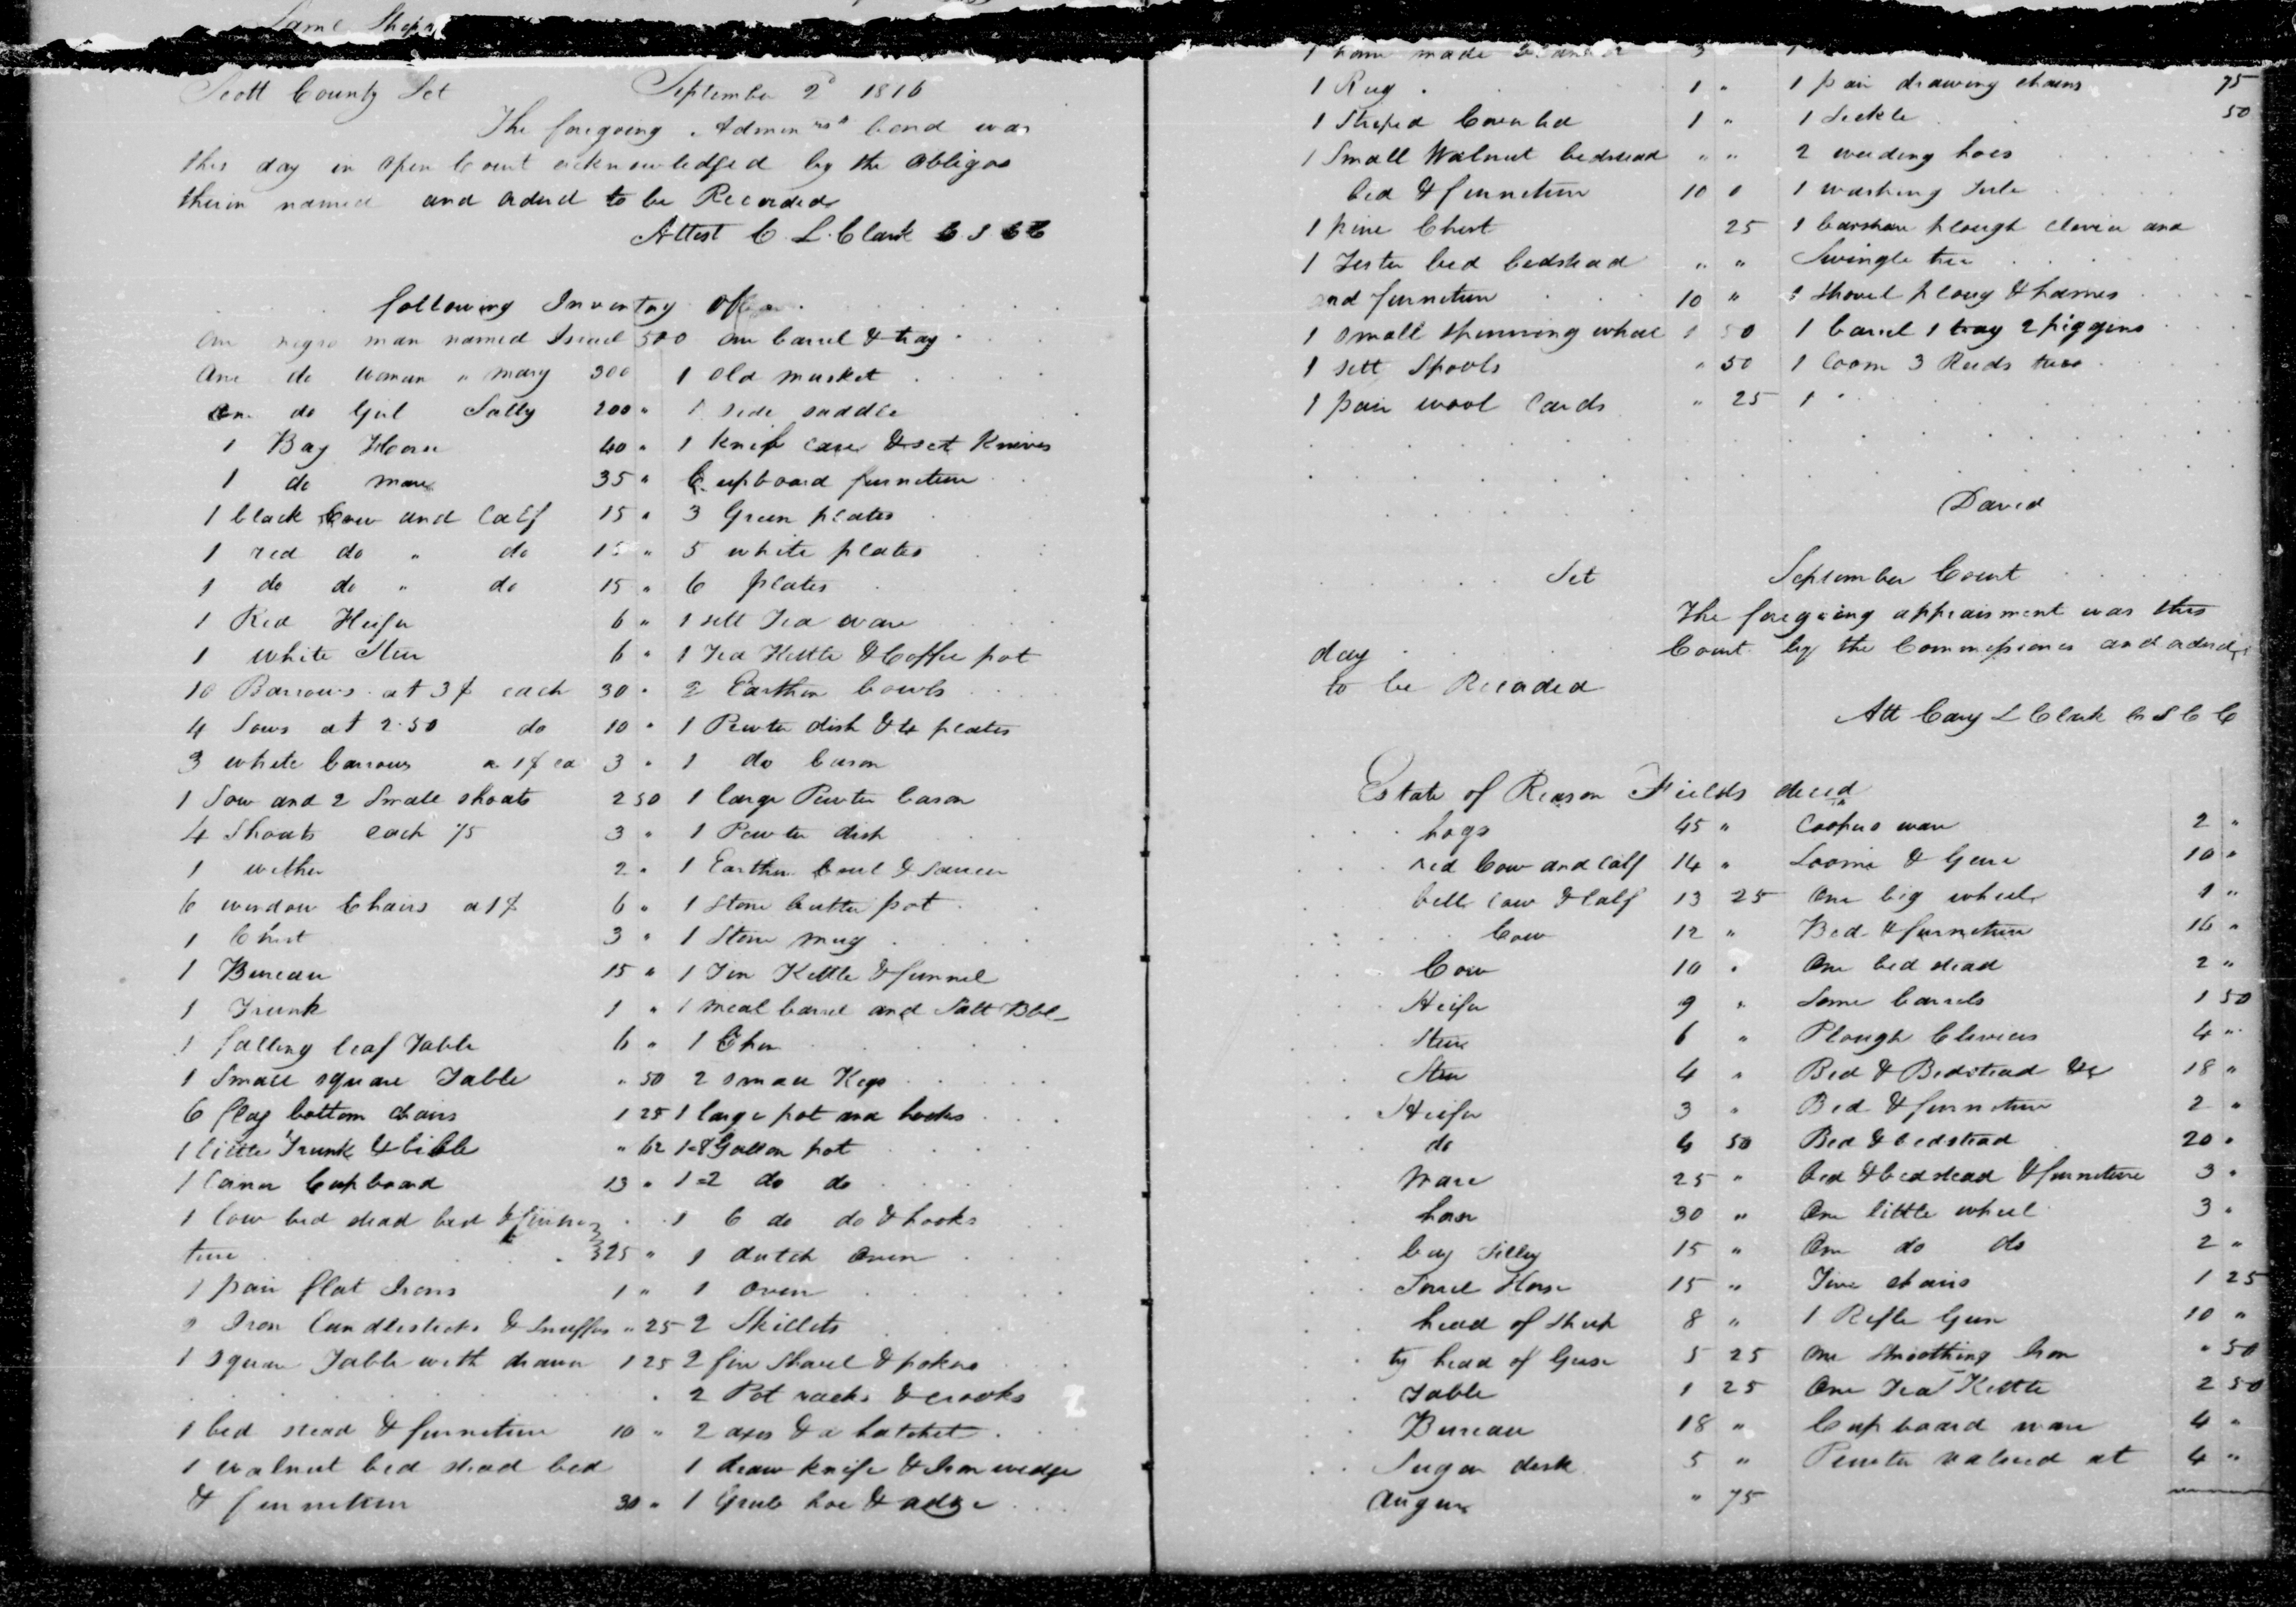 Same Shepa
Scott County Sct September 2d 1816
The foregoing Admin bond was
this day in open Court acknowledged by the obligos
therin named and ordered to be Recorded
Attest C. L. Clark C S C C
following Inventory of
One negro man named Israel 500 one barrel & tray
One do woman " Mary 300 1 old musket
One do Girl Sally 200 " 1 side saddle
1 Bay Horse 40 " 1 Knife case & set Knives
1 do mare 35 " Cupboard furneture
1 black Cow and Calf 15 " 3 Green plates
1 red do " do 15 " 5 white plates
1 do do " do 15 " 6 plates
1 Red Heifer 6 " 1 sett Tea ware
1 white Steer 6 " 1 Tea Kettle & Coffee pot
10 Barrows at 3$ each 30 " 2 Earthen bowls
4 Sows at 2.50 do 10 " 1 Pewter dish & 4 plates
3 white barrows a 1$ ea 3 " 1 do bason
1 Sow and 2 Small shoats 2 50 1 large Pewter bason
4 Shoats each 75 3 " 1 Pewter dish
1 wether 2 " 1 Earthen bowl & saucer
6 windsor Chairs a 1$ 6 " 1 Stone butter pot
1 Chest 3 " 1 Stone mug
1 Bureau 15 " 1 Tin Kettle & funnel
1 Trunk 1 " 1 meal barrel and Salt Bbl
1 falling leaf Table 6 " 1 Churn
1 Small square Table " 50 2 small Kegs
6 flag bottom chairs 1 25 1 large pot and hooks
1 little Trunk & bible " 62 1=8 Gallon pot
1 Corner Cupboard 13 " 1=2 do do
1 low bed stead bed & furne 1 6 do do & hooks
ture 325 " 1 dutch oven
1 pair flat Irons 1 " 1 oven
Iron Candlesticks & Snuffers " 25 2 Skillets
1 square Table with drawer 1 25 2 fire Shovel & pokers
2 Pot racks & crooks
1 bed stead & furneture 10 " 2 axes & a hatchet
1 walnut bed stead bed 1 draw knife & Iron wedge
& furneture 30 " 1 Grub hoe & adze
1 home made 3 1
1 Rug 1 " 1 pair drawing chains 75
1 Striped Coverlid 1 " 1 Sickle 50
1 Small Walnut bedstead " " 2 weeding hoes
bed & furneture 10 0 1 washing Tub
1 pine Chest 25 1 barshare plough clevis and
1 Tester bed bedstead " " Swingle tree
and furneture 10 " 1 Shovel ploug & hames
1 small spinning wheel 1 50 1 barrel 1 tray 2 piggins
1 sett Spools " 50 1 loom 3 Reeds
1 pair wool Cards " 25 1 "
David
Sct September Court
The foregoing appraisment was this
day Court by the Commissioners and ordered
to be Recorded
Att Cary L Clark C S C C
Estate of Reason Fields decd
hogs 45 " Coopers ware 2 "
red Cow and Calf 14 " Loome & Gear 10 "
bell cow & Calf 13 25 One big wheel 1 "
Cow 12 " Bed & furneture 16 "
Cow 10 " One bed stead 2 "
Heifer 9 " Some barrels 1 50
Steer 6 " Plough Clevises 4 "
Steer 4 " Bed & Bedstead &c 18 "
Heifer 3 " Bed & furneture 2 "
do 4 50 Bed & bedstead 20 "
Mare 25 " Bed & bedstead & furneture 3 "
horse 30 " One little wheel 3 "
bay Filley 15 " One do do 2 "
Sorrel Horse 15 " Five chairs 1 25
head of Sheep 8 " 1 Rifle Gun 10 "
ty head of Geese 5 25 One Smoothing Iron " 50
Table 1 25 One Tea Kettle 2 50
Bureau 18 " Cupboard ware 4 "
Sugar desk 5 " Pewter valued at 4 "
Augurs " 75